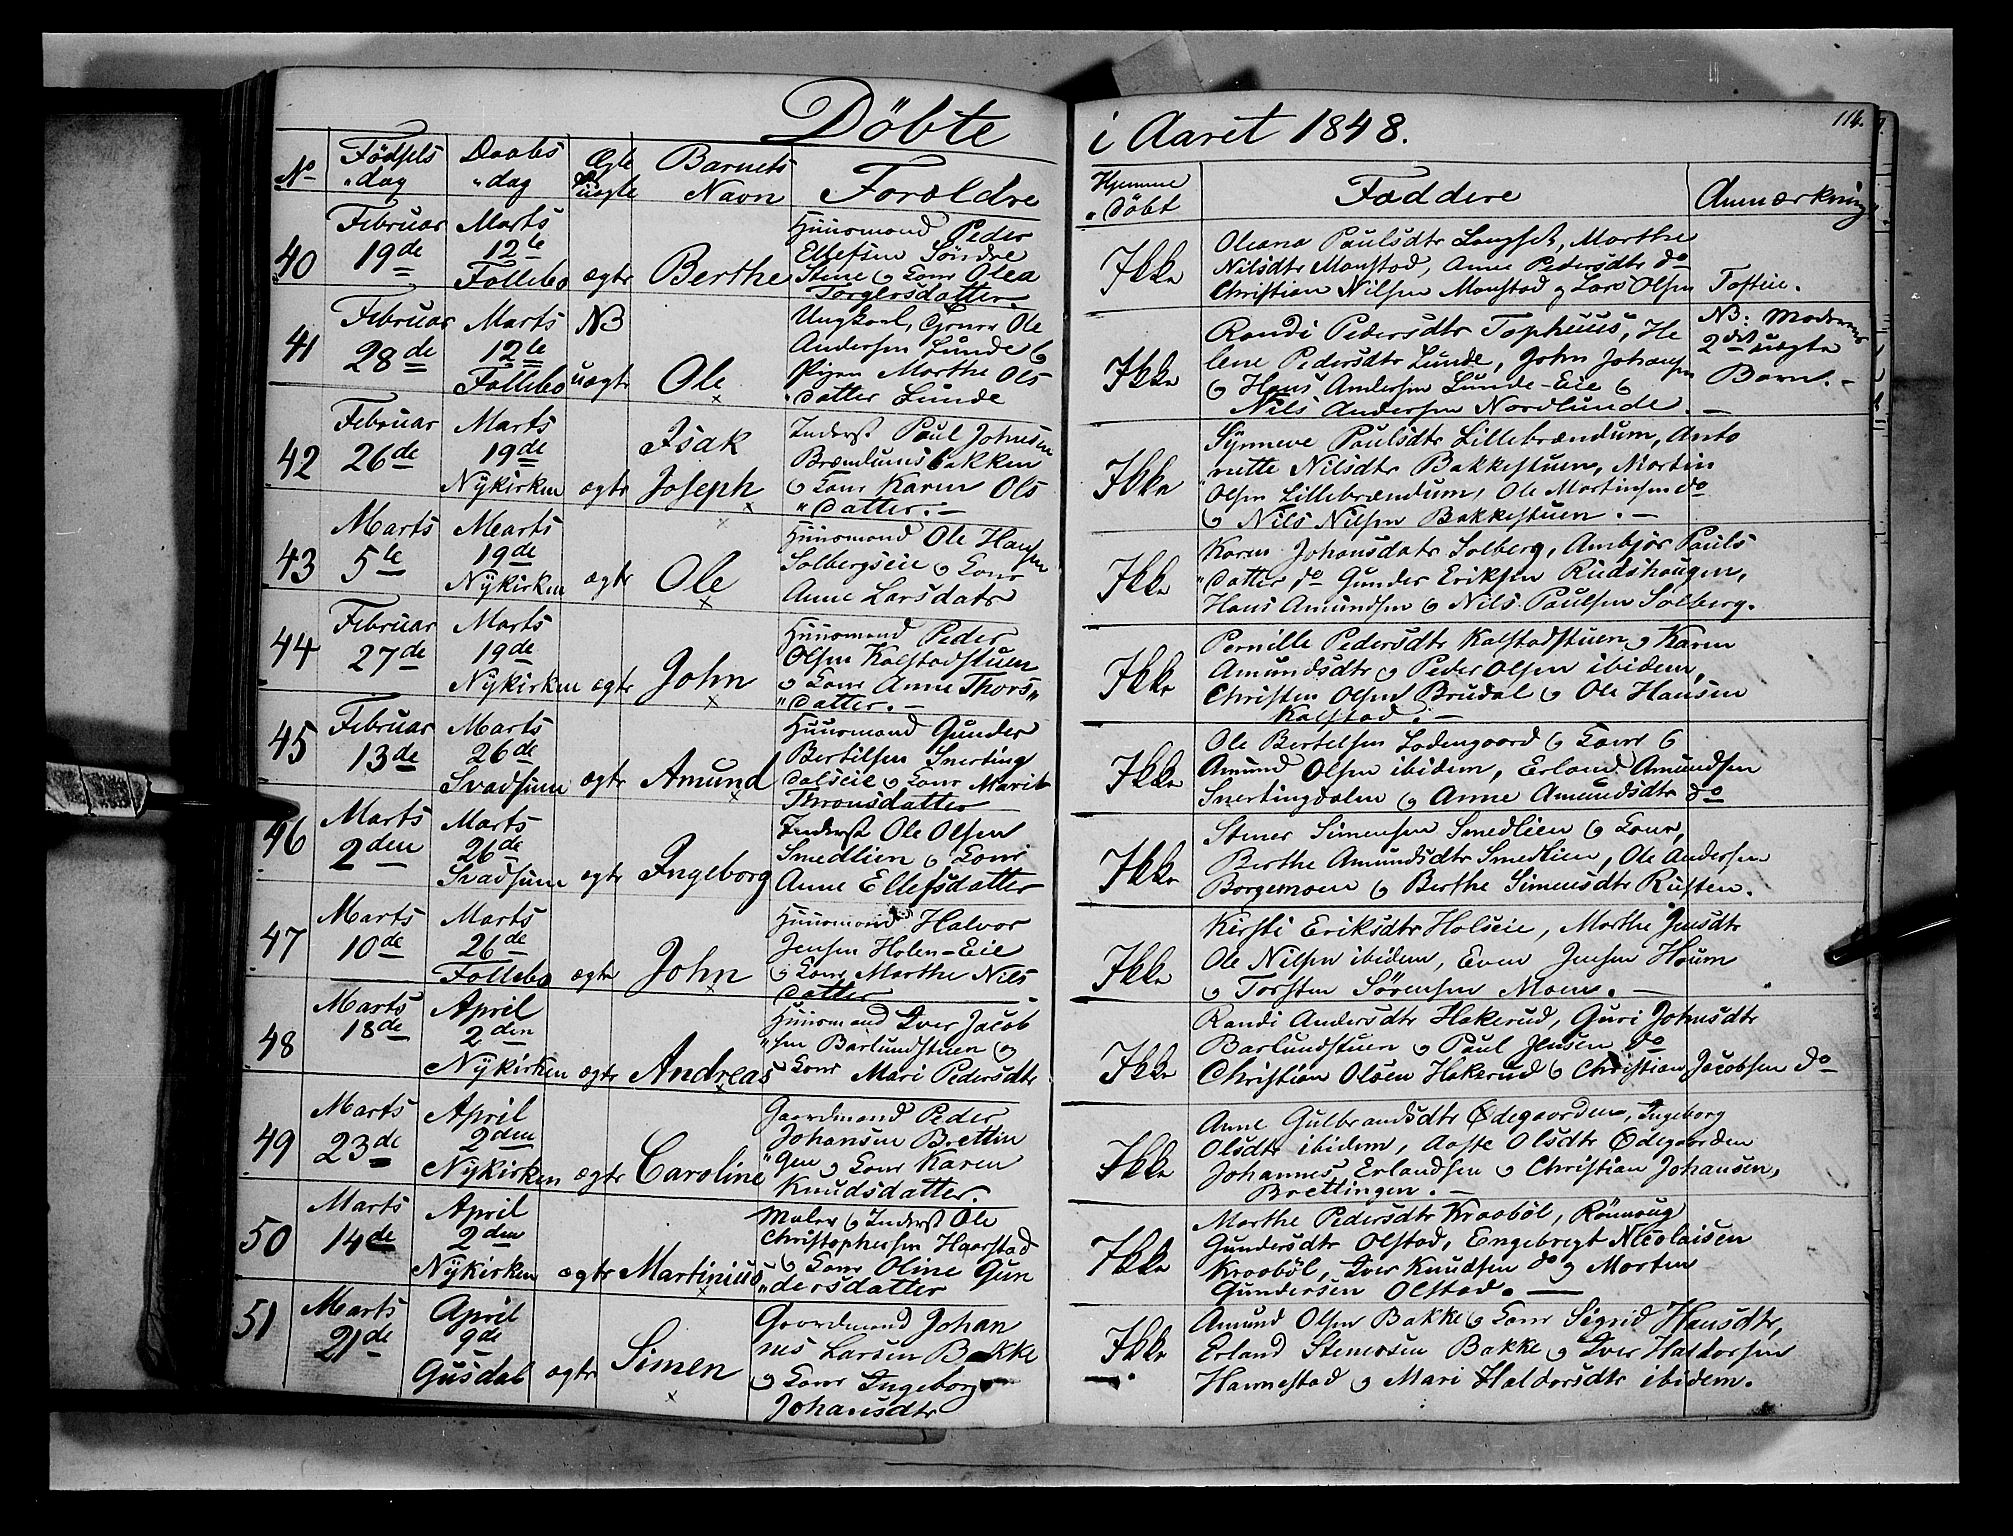 Döbte
i Aaret 1848.
114.
No
Födsels
"dag
Daabs
"dag
Ægte
el
uægte
Barnets
Navn
Forældre
Hjemme
"döbt
Faddere
Anmærkning
40
Februar
19de
Marts
12te
Follebo
ægte
Berthe
Huusmand Peder
Ellefsen Söndre
Stene og Konr Olea
Torgersdatter.
Ikke
Oleana Paulsdtr Langset, Marthe
Nilsdtr Monstad, Anne Pedersdtr do
Christian Nilsen Monstad og Lars Olsen Toftin.
41
Februar
28de
Marts
12te
Follebo
NB
uægte
Ole
Ungkarl, Ole
Andersen Lunde og
Pigen Marthe Ols
"datter Lunde
Ikke
Randi Pedersdtr Tophuus, He
lene Pedersdtr Lunde, John Johansen
og Hans Andersen Lunde-Eie og
Nils Andersen Nordlunde. —
NB: Moderens
2det uægte
Barn. -
42
Februar
26de
Marts
19de
Nykirken
ægte
Isak
Joseph
Inderst Paul Johnsen
Brændumsbakken
og Konr Karen Ols
"datter. —
Ikke
Synneve Paulsdtr Lillebrændum, Anto
nette Nilsdtr Bakkestuen, Martin
Olsen Lillebrændum, Ole Martinsen do
og Nils Nilsen Bakkestuen. —
43
Marts
5te
Marts
19de
Nykirken
ægte
Ole
Huusmand Ole Hansen
Solbergseie og Konr
Anne Larsdatr
Ikke
Karen Johansdatr Solberg, Ambjör Pauls
"datter do Gunder Eriksen Rudshaugen,
Hans Amundsen og Nils Paulsen Solberg.
44
Februar
27de
Marts
19de
Nykirken
ægte
John
Huusmand Peder
Olsen Kalstadstuen
og Konr Anne Thors"
"datter. —
Ikke
Pernille Pedersdtr Kalstadstuen og Karen
Amundsdtr og Peder Olsen ibidem,
Christen Olsen Brudal og Ole Hansen
Kalstad. —
45
Februar
13de
Marts
26de
Svadsum
ægte
Amund
Huusmand Gunder
Bertilsen Snerting
dalseie og Konr Marit
Thronsdatter
Ikke
Ole Bertelsen Lodengaard og Konr og
Amund Olsen ibidem, Erland Amundsen
Snertingdalen og Anne Amundsdtr do
46
Marts
2den
Marts
26de
Svadsum
ægte
Ingeborg
Inderst Ole Olsen
Smedlien og Konr
Anne Ellefsdatter
Ikke
Stener Simensen Smedlien og Konr,
Berthe Amundsdtr Smedlien, Ole Andersen
Borgemoen og Berthe Simensdtr Rusten.
47
Marts
10de
Marts
26de
Follebo
ægte
John
Huusmand Halvor
Jensen Holen-Eie
og Konr Marthe Nils
datter
Ikke
Kirsti Eriksdtr Holseie, Marthe Jensdtr
Ole Nilsen ibidem, Even Jensen Houm
og Torsten Sörensen Moen. —
48
Marts
18de
April
2den
Nykirken
ægte
Andreas
Huusmand Iver Jacob
"sen Barlundstuen og
Konr Mari Pedersdtr
Ikke
Randi Andersdtr Hakerud, Guri Johnsdtr
Barlundstuen og Paul Jensen do
Christian Olsen Hakerud og Christian Jacobsen do
49
Marts
23de
April
2den
Nykirken
ægte
Caroline
Gaardmand Peder
Johansen Brettin
"gen og Konr Karen
Knudsdatter.
Ikke
Anne Gulbrandsdtr Ødegaarden, Ingeborg
Olsdtr ibidem, Aaste Olsdtr Ødegaarden
Johannes Erlandsen og Christian Johansen,
Brettingen. —
50
Marts
14de
April
2den
Nykirken
ægte
Martinius
Maler og Inderst Ole
Christophersen Haarstad
og Konr Oline Gun
"dersdatter
Ikke
Marthe Pedersdtr Kraaböl, Rönnoug
Gundersdtr Olstad, Engebregt Nicolaisen
Kraaböl, Iver Knudsen do og Morten
Gundersen Olstad. —
51
Marts
21de
April
9de
Gusdal
ægte
Simen
Gaardmand Johan
nes Larsen Bakke
og Konr Ingeborg
Johansdtr
Ikke
Amund Olsen Bakke og Konr Sigrid Hansdtr,
Erland Stenersen Bakke og Iver Haldorsen
Hannestad og Mari Haldorsdtr ibidem.